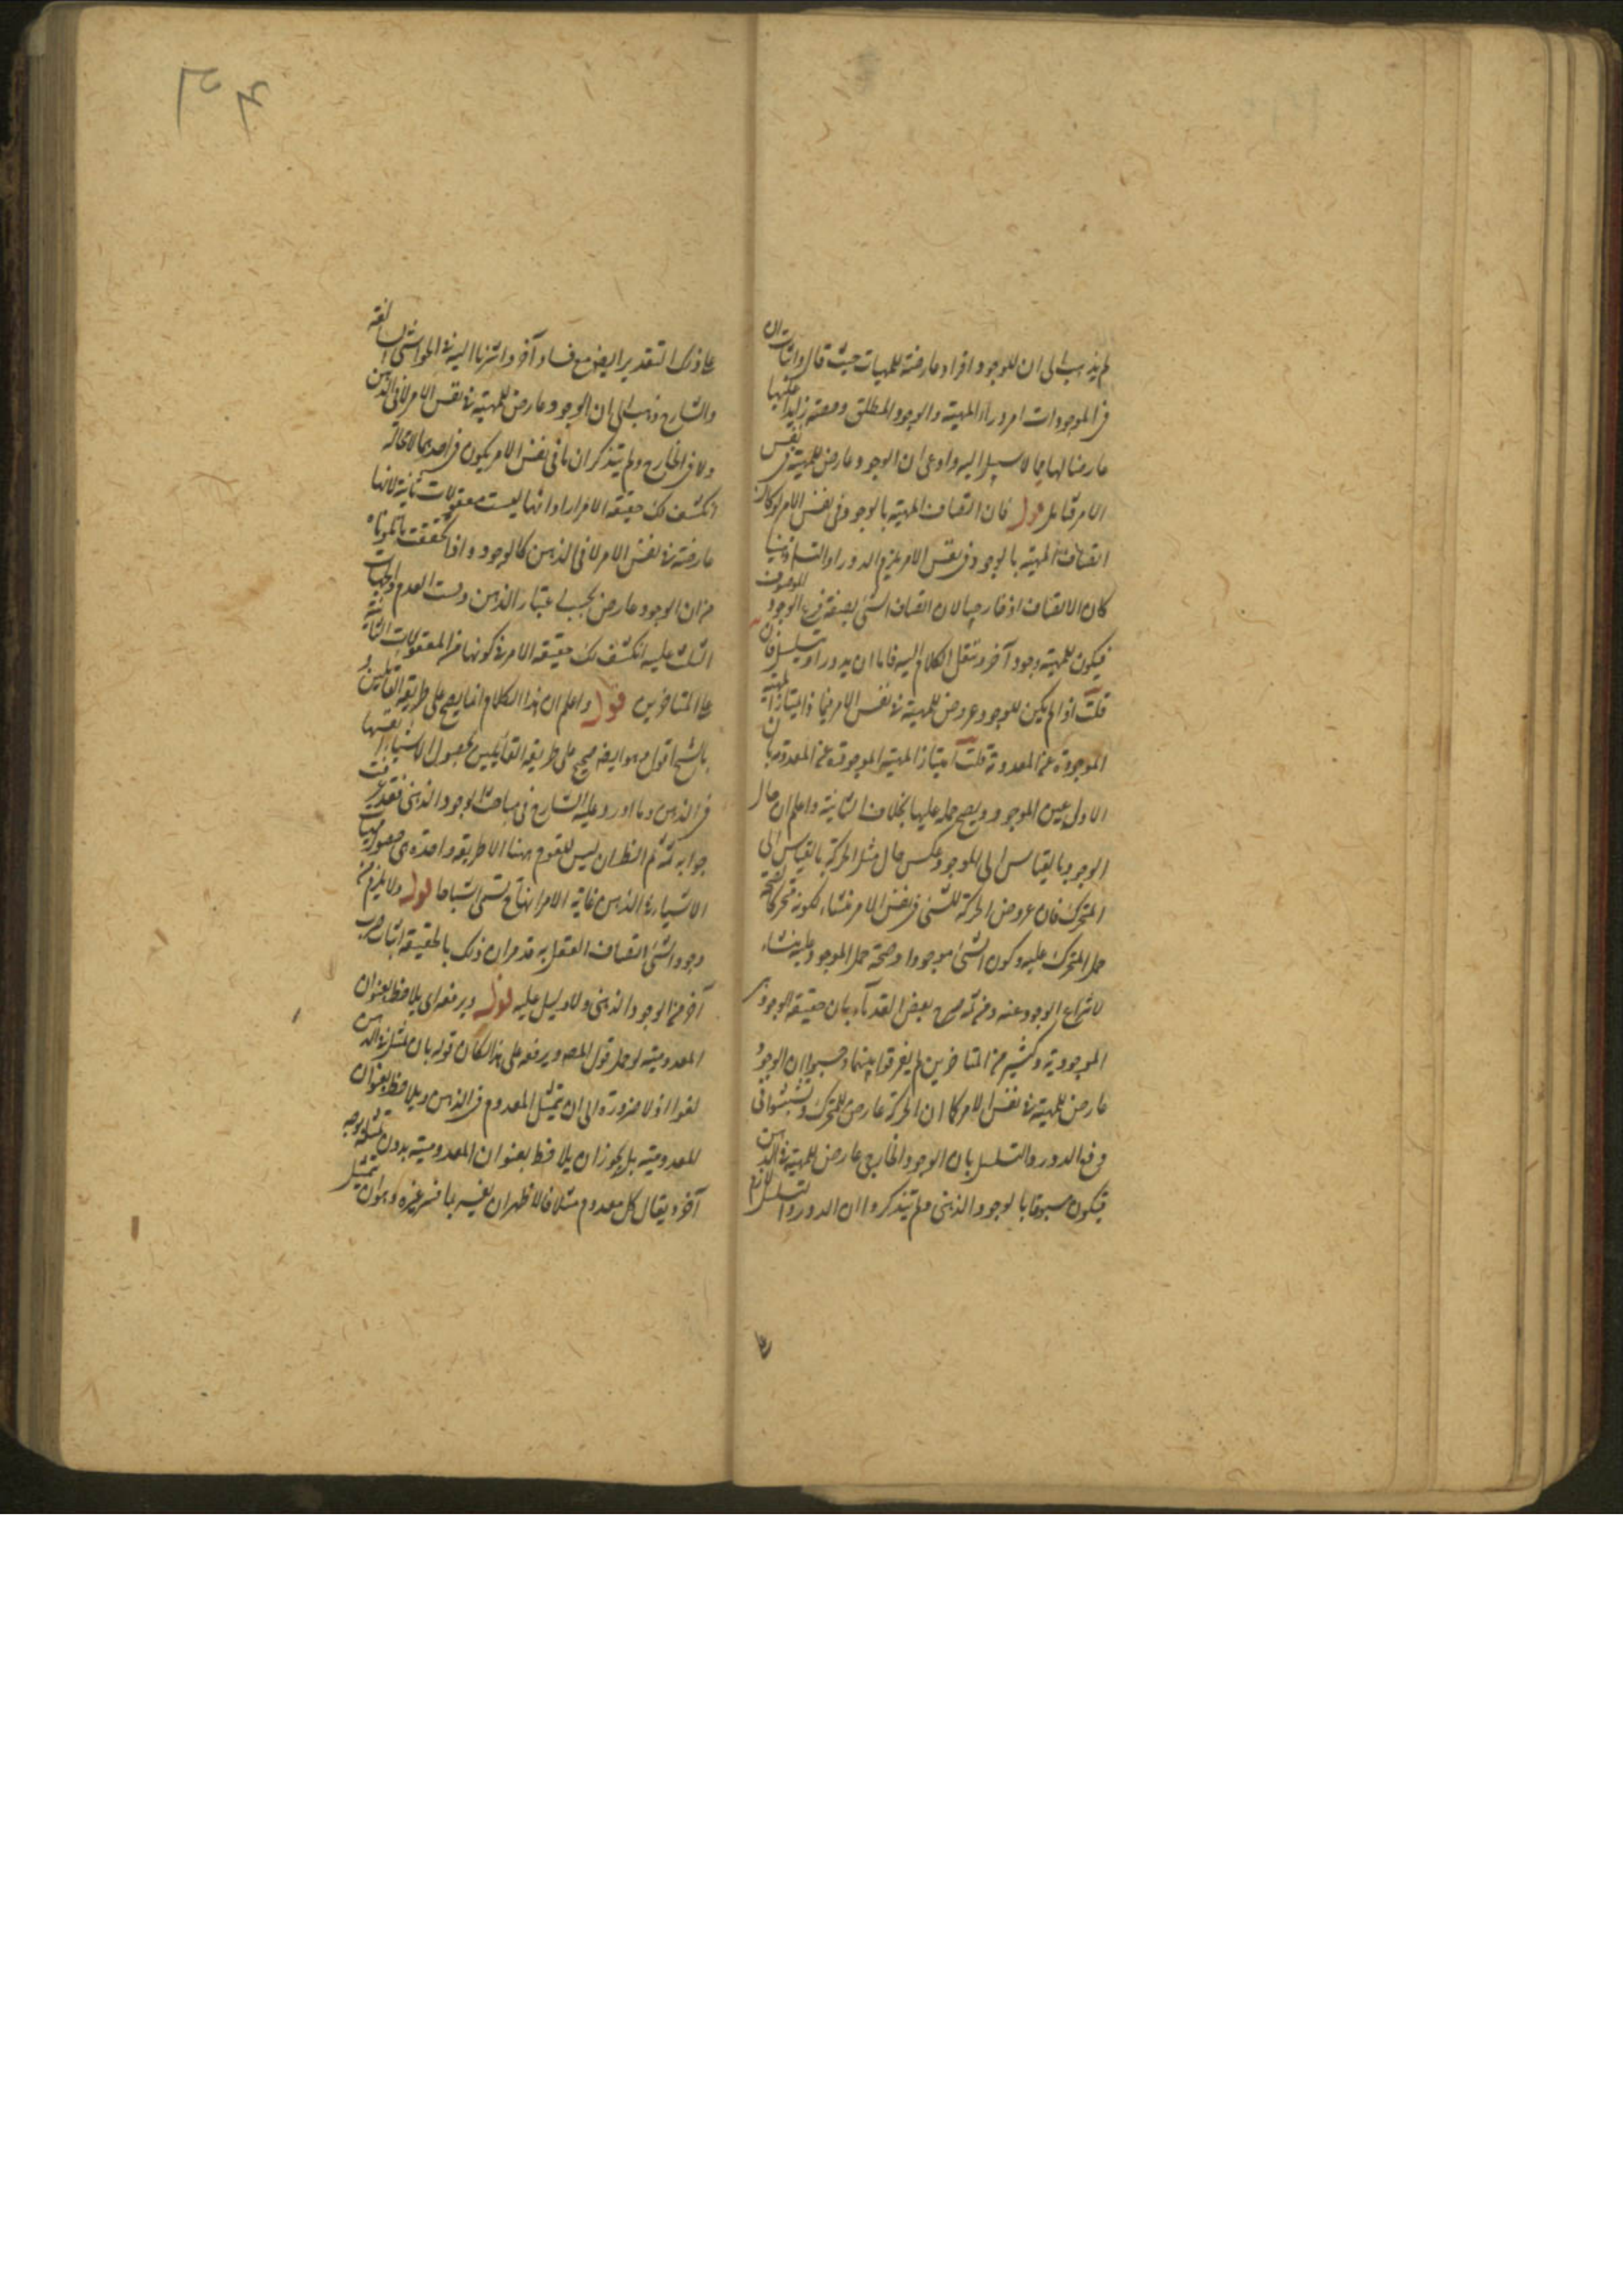 لم يذهب الى ان للوجود افرادا عارضة للمهيات حيث قال واثبات ان
في الموجودات امر وراء المهية والوجود المطلق وحصته زايدا عليها
عارضا لها مما لا سبيل اليه وادعى ان الوجود عارض للمهية في نفس
الامر فتأمل قوله فان اتصاف المهية بالوجود في نفس الامر لو كان
اتصاف المهية بالوجود في نفس الامر يلزم الدور او التسلسل ذهنيا
كان الاتصاف او خارجيا لان اتصاف الشئ بصفة فرع الوجود الموصوف
فيكون للمهية وجود آخر وننقل الكلام اليه فاما ان يدور او يتسلسل فان
قلت اذا لم يكن للوجود عروض للمهية في نفس الامر فبماذا امتياز المهية
الموجودة عن المعدومة قلت امتياز المهية الموجودة عن المعدومة بان
الاول عين الموجود ويصح حمله عليها بخلاف الثانية واعلم ان حال
الوجود بالقياس الى الموجود عكس حال مثل الحركة بالقياس الى
المتحرك فان عروض الحركة للشئ في نفس الامر منشاء لكونه متحركا لصحة
حمل المتحرك عليه وكون الشئ موجودا وصحة حمل الموجود عليه منشاء
لانتزاع الوجود عنه ومن ثمه صرح بعض القدمآء بان حقيقة الوجود هى
الموجودية وكثير من المتاخرين لم يفرقوا بينهما وحسبوا ان الوجود
عارض للمهية في نفس الامر كما ان الحركة عارض للمتحرك وتشبثوا في
دفع الدور والتسلسل بان الوجود الخارجى عارض للمهية في الذهن
فيكون مسبوقا بالوجود الذهنى ولم يتذكروا ان الدور والتسلسل لازم
على ذلك التقدير ايضا مع فساد آخر واشرنا اليه في الحواشى السابقة
والشارح ذهب الى ان الوجود عارض للمهية في نفس الامر لا في الذهن
ولا في الخارج ولم يتذكر ان ما في نفس الامر يكون في احدهما لا محالة
انكشف لك حقيقة الامر اراد انها ليست معقولات ثانية لانها
عارضة في نفس الامر لا في الذهن كالوجود واذا تحققت ما تلوناه
من ان الوجود عارض بحسب اعتبار الذهن وست العدم والجهات
الثلث عليه انكشف لك حقيقة الامر في كونها من المعقولات الثانية
على المتاخرين قوله واعلم ان هذا الكلام انما يصح على طريقة القائلين
بالشبح اقول هو ايضا صحيح على طريقة القائلين بحصول الاشياء بانفسها
في الذهن وما اورد عليه الشارح في مباحث الوجود الذهنى فقد عرفت
جوابه ثمه ثم الظ ان ليس للقوم ههنا الا طريقة واحدة هى حصول مهيات
الاشياء في الذهن غاية الامر انها تسمى اشباحا قوله ولا يلزم من
وجود الشئ اتصاف العقل به قد مر ان ذلك بالحقيقة اثبات ضرب
آخر من الوجود الذهنى ولا دليل عليه قوله ويرفعه اى يلاحظ بعنوان
المعدومية لو حمل قول المص ويرفعه على هذا لكان قوله بان يتمثل في الذهن
لغوا اذ لا ضرورة الى ان يتمثل المعدوم في الذهن ويلاحظ بعنوان
المعدومية بل يجوز ان يلاحظ بعنوان المعدومية بدون تمثله بوجه
آخر ويقال كل معدوم مثلا فالاظهر ان يفسر بما فسر غيره وهو ان يتمثل